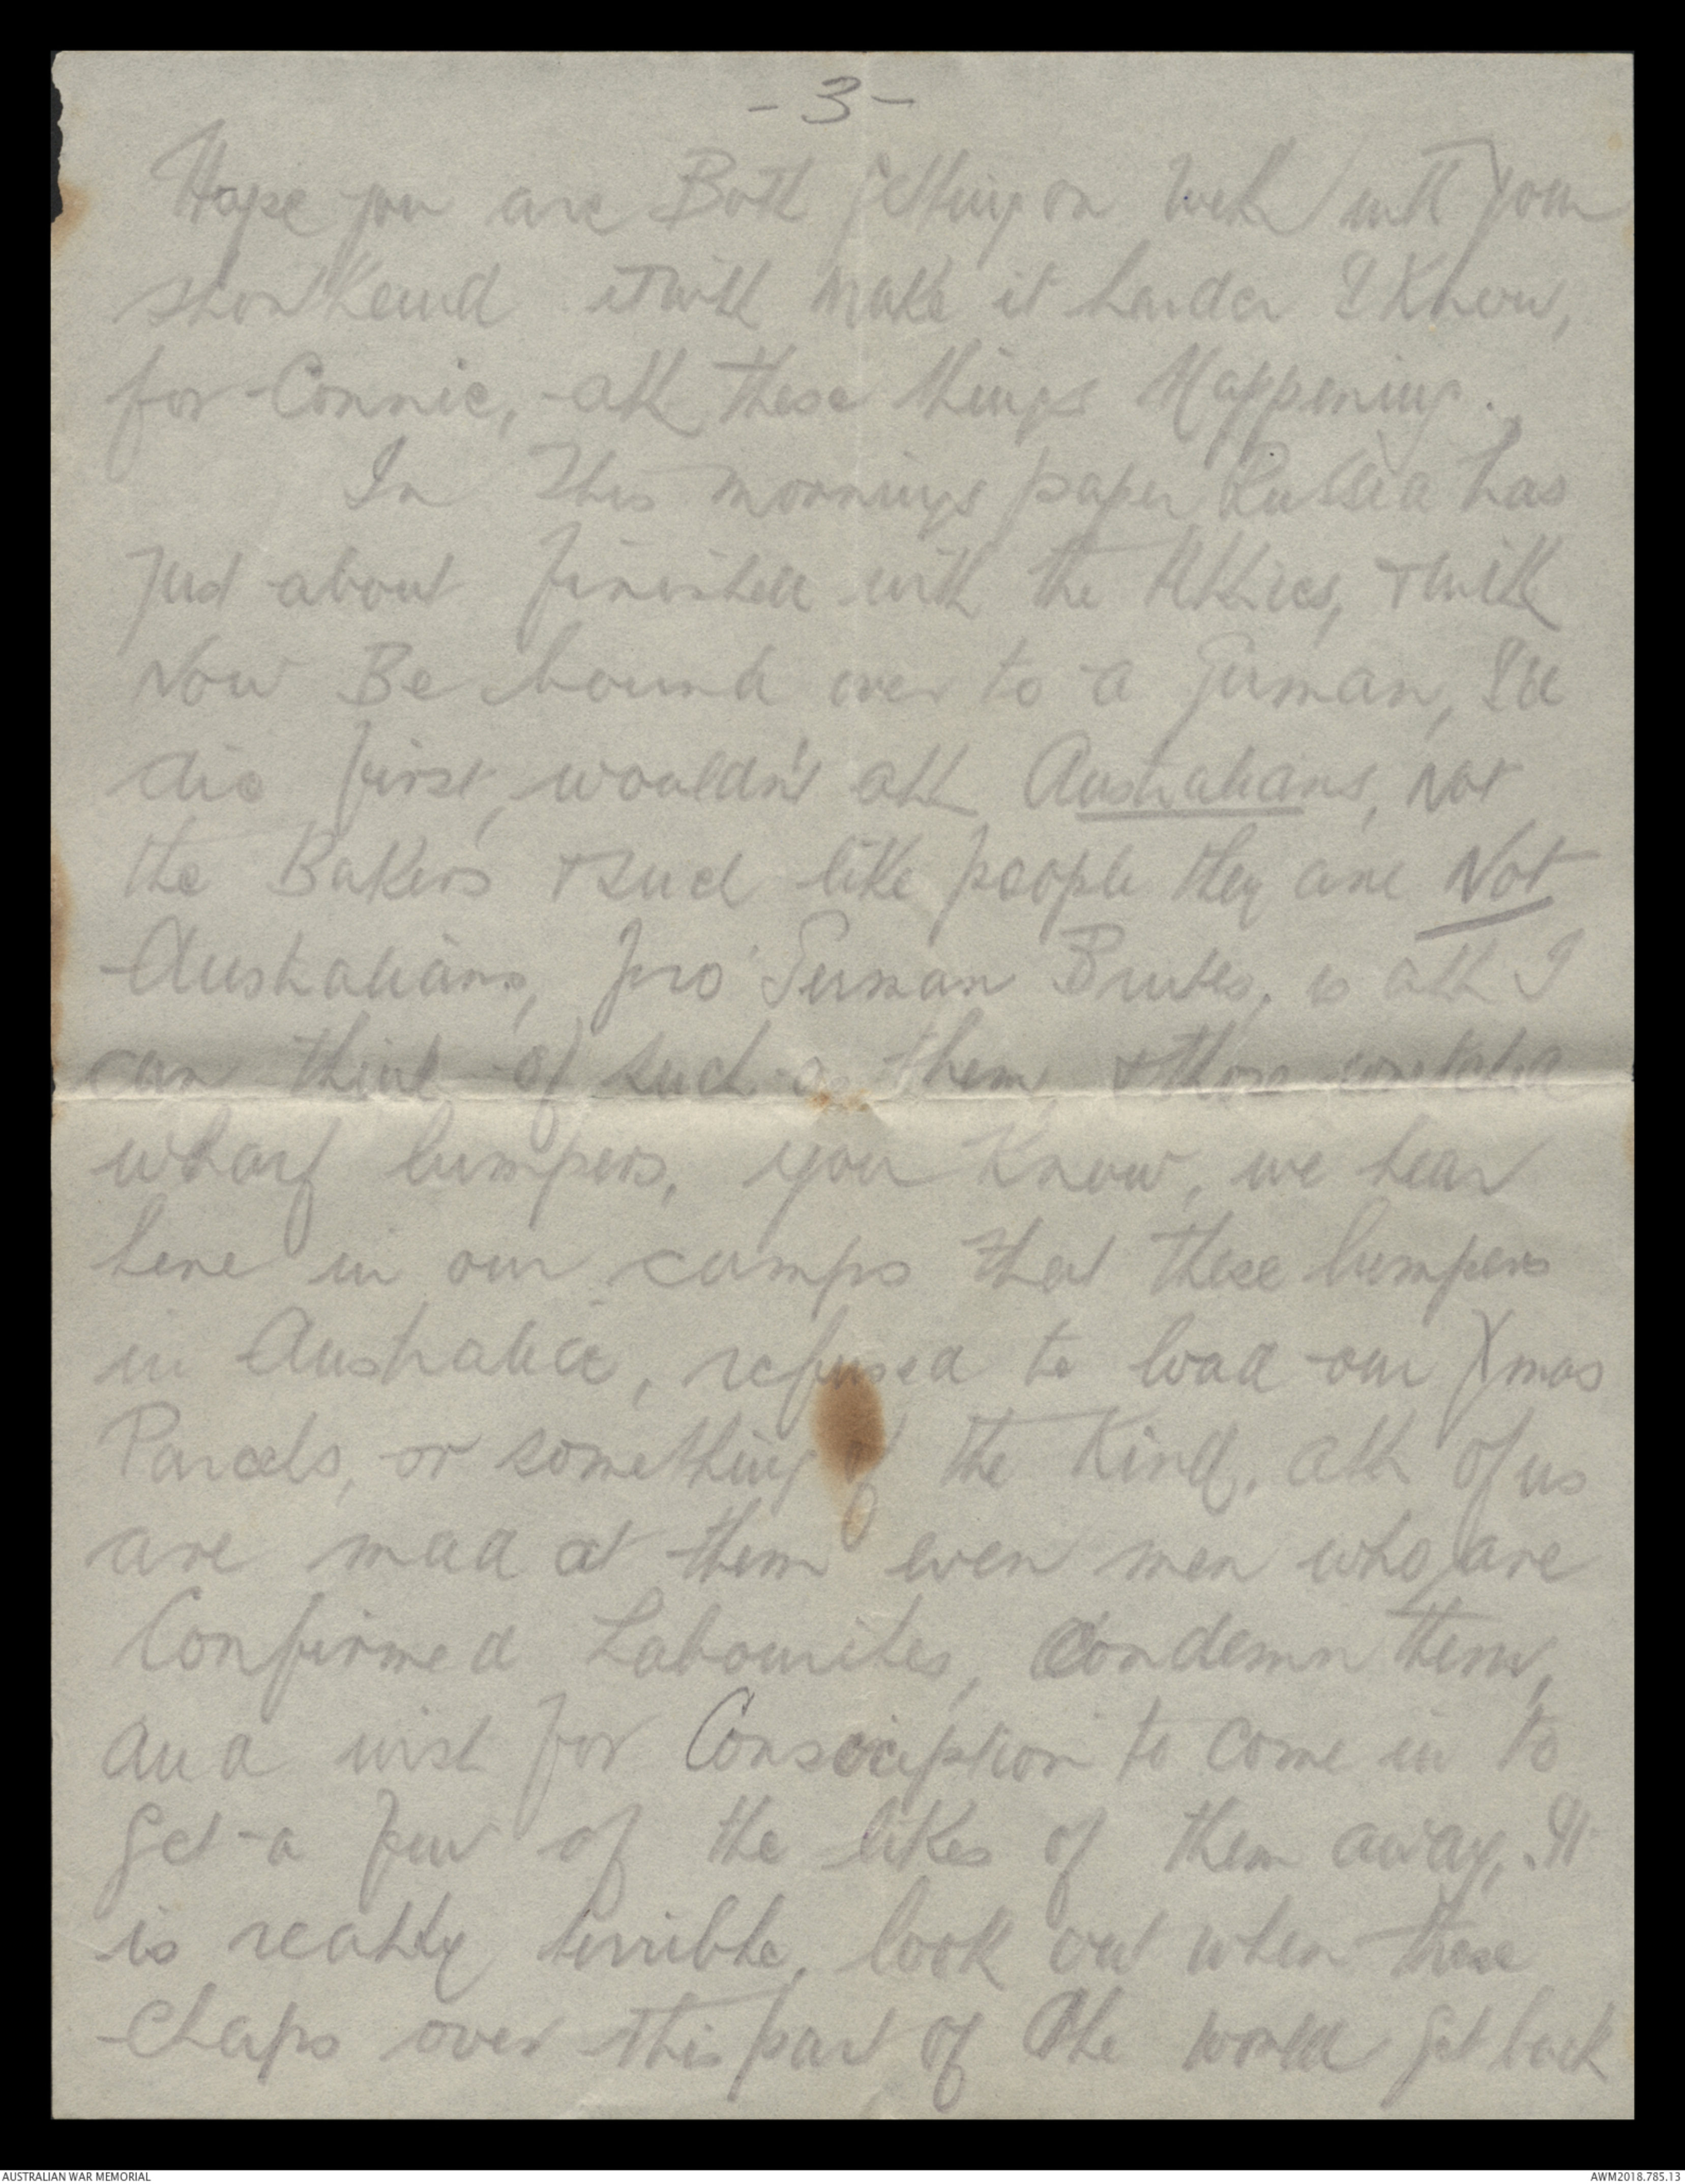 - 3 -
Hope you are Both getting on well with your
shorthand it will make it harder I know,
for Connie, all these things Happening.
In this mornings paper Russia has
Just about finished with the Allies, & will
Now Be bound over to a German, I'd
die first, wouldn't all Australians, Not
the Bakers & such like people they are Not
Australians, pro German Brutes, is all I
can think of such as them, & those wretched
wharf lumpers, you know, we hear
here in our camps that these lumpers
in Australia, refused to load our Xmas
Parcels, or something of the kind, all of us
are mad at them even men who are
Confirmed Labourites, Condemn them,
and wish for Conscription to come in to
get a few of the likes of them away, It
is really terrible, look out when these
chaps over this part of the world get back
AUSTRALIAN WAR MEMORIAL
AWM2018.785.13